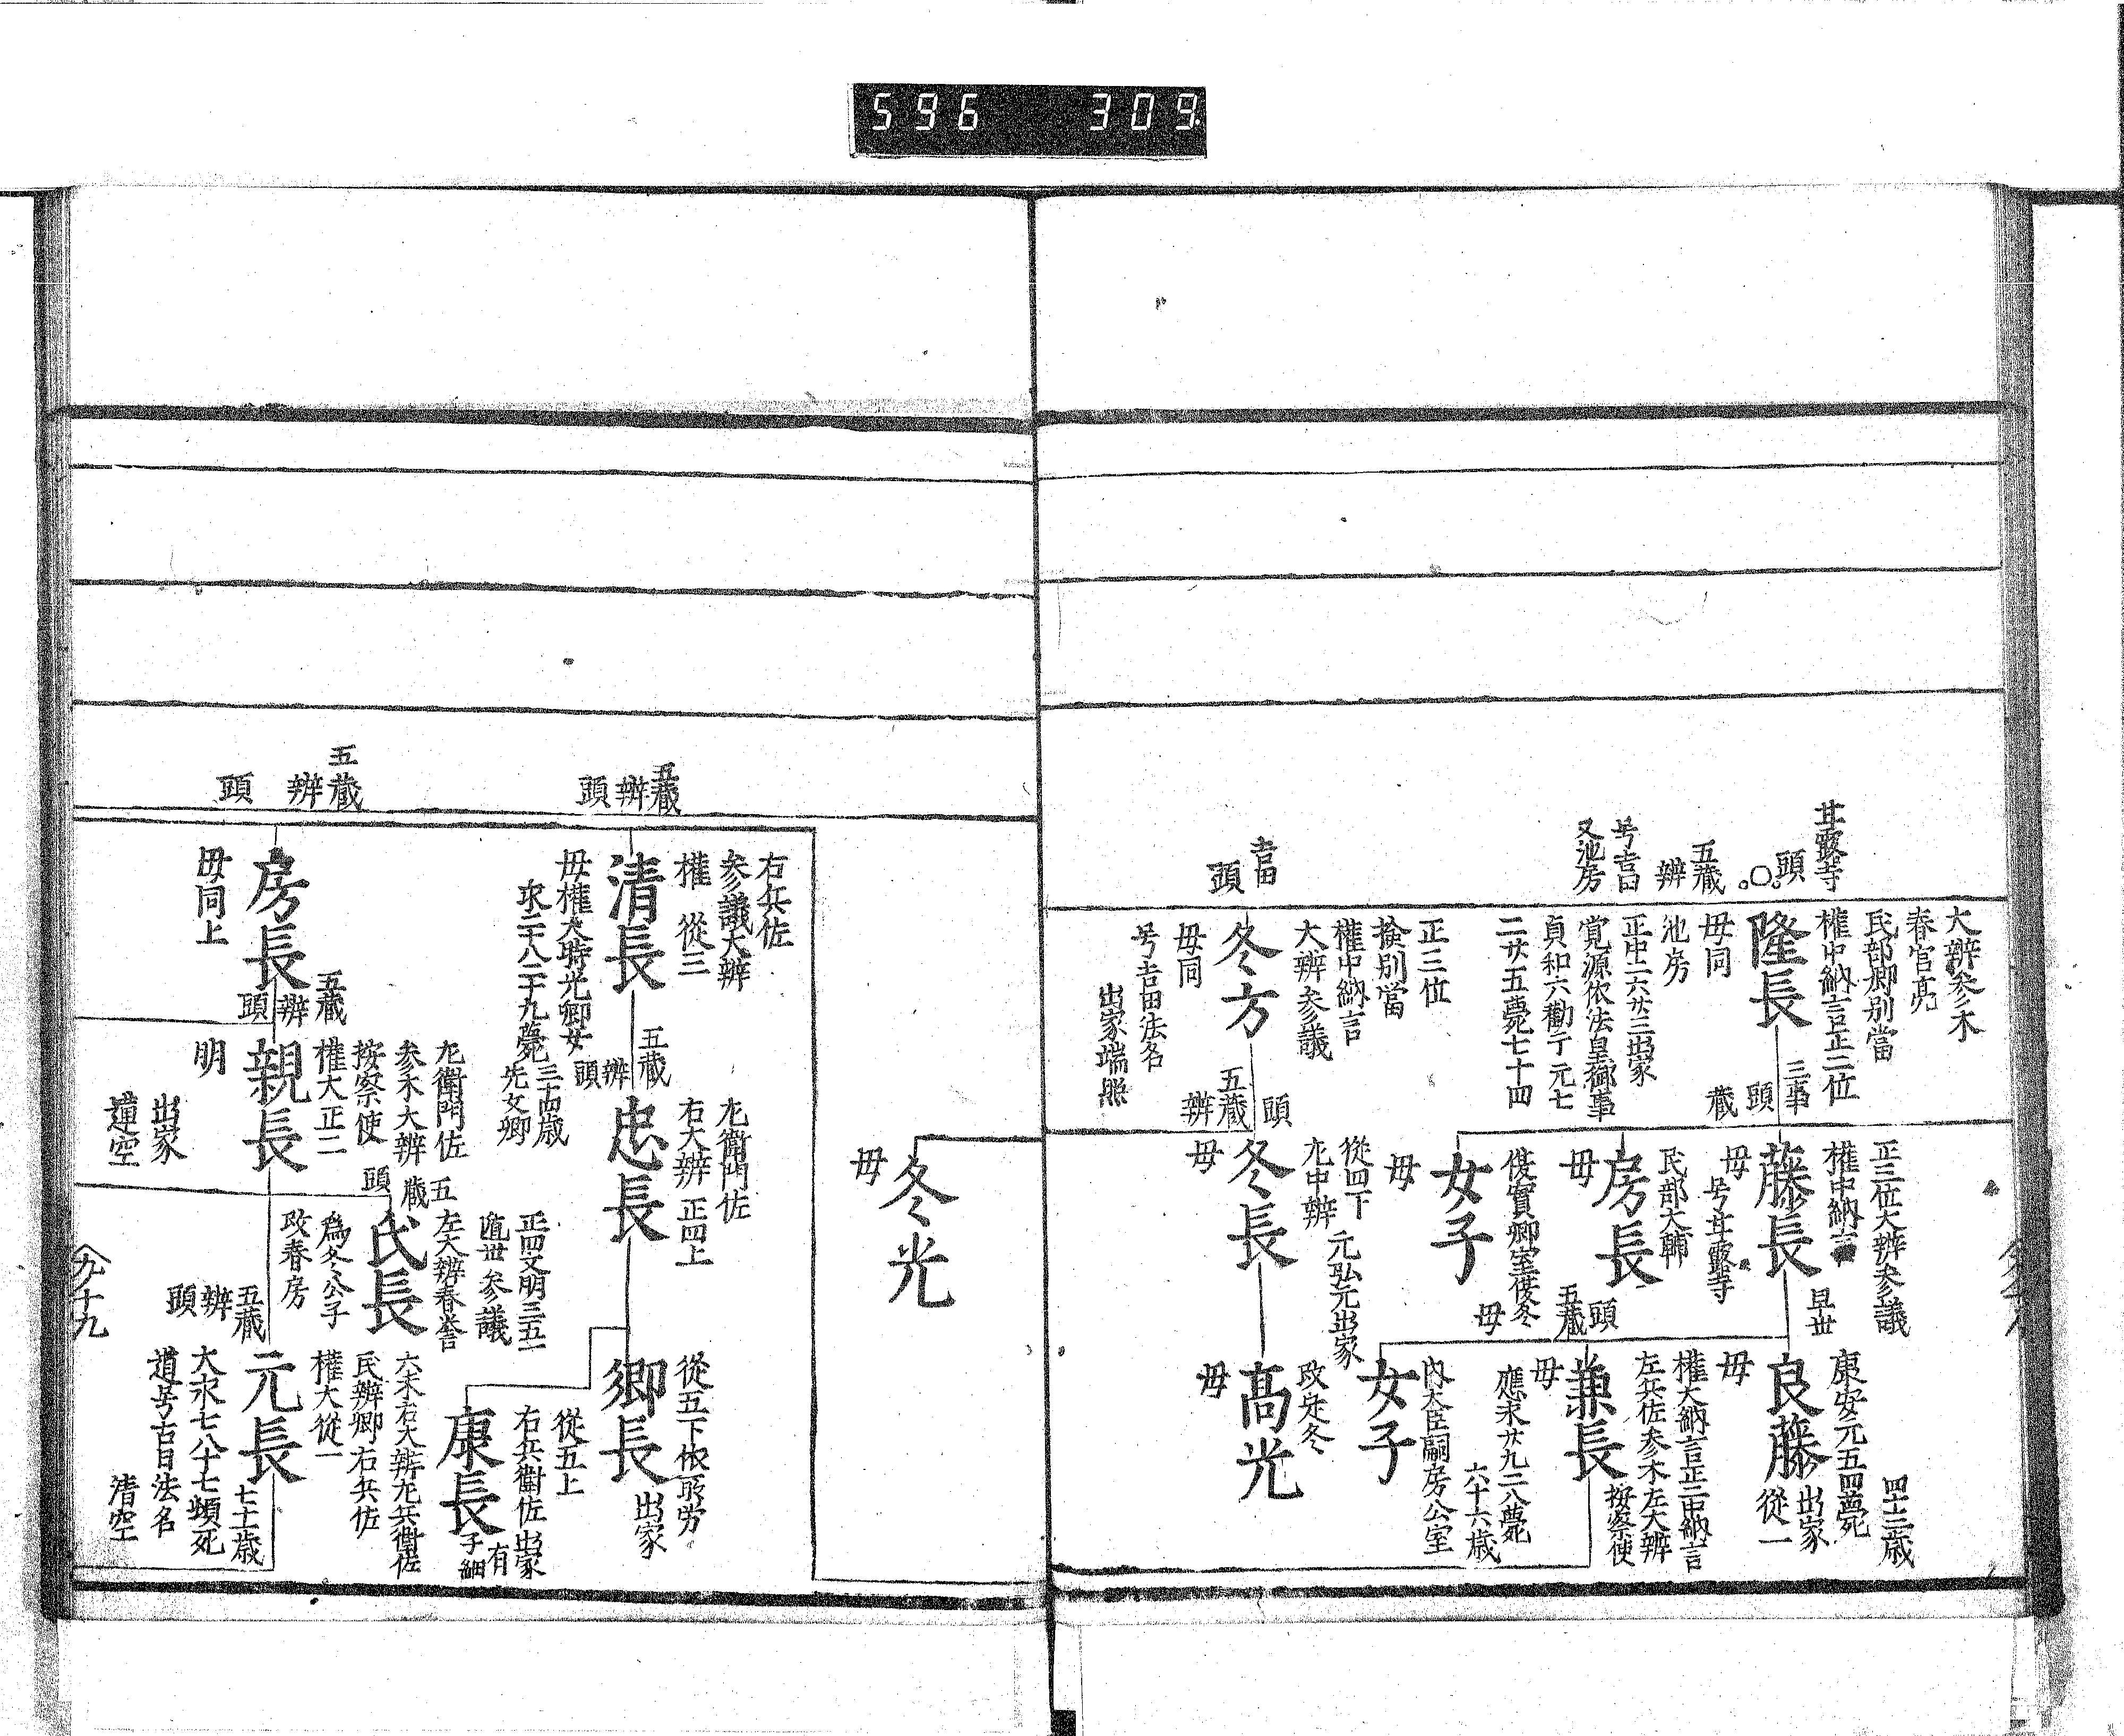 596 309
甘露寺
頭
大辨参木
春宮亮
民部卿別當
權中納言正二位
隆長
母同
池房
正中二六廿三出家
覚源依法皇御事
貞和六勸丁元七
二廿五薨七十四
五藏
辨
号吉田
又池房
三事
頭
藏
正三位大辨参議
權中納言
藤長
早世
母
号甘露寺
民部大輔
房長
母
俊實卿室俊冬
女子
母
康安元五四薨
四十三歳
良藤
出家
從一
母
頭
五藏
權大納言正二中納言
左兵佐参木左大辨
按察使
兼長
母
應永廿九二八薨
六十六歳
母
内大臣嗣房公室
女子
吉田
頭
正三位
撿別當
權中納言
大辨参議
冬方
母同
号吉田法名
出家端照
頭
五藏
辨
從四下
左中辨
元弘元出家
冬長
母
改定冬
高光
母
冬光
母
五藏
辨
頭
右兵佐
参議大辨
權 從三
清長
母權大時光卿女
三十四歳
先父卿
五藏
辨
頭
左衛門佐
右大辨 正四上
忠長
從五下依所労
卿長
出家
從五上
右兵衛佐 出家
康長
有
子細
五藏
辨
頭
房長
母同上
五藏
辨
頭
左衛門佐
参木大辨
按察使
權大正二
親長
明
出家
蓮空
五
藏
頭
正四文明三五一
遁世参議
氏長
為冬公子
改春房
五藏
辨
頭
六木右大辨左兵衛佐
民辨卿右兵佐
權大從一
元長
七十一歳
大永七八十七頓死
道号古目法名
清空
九十九